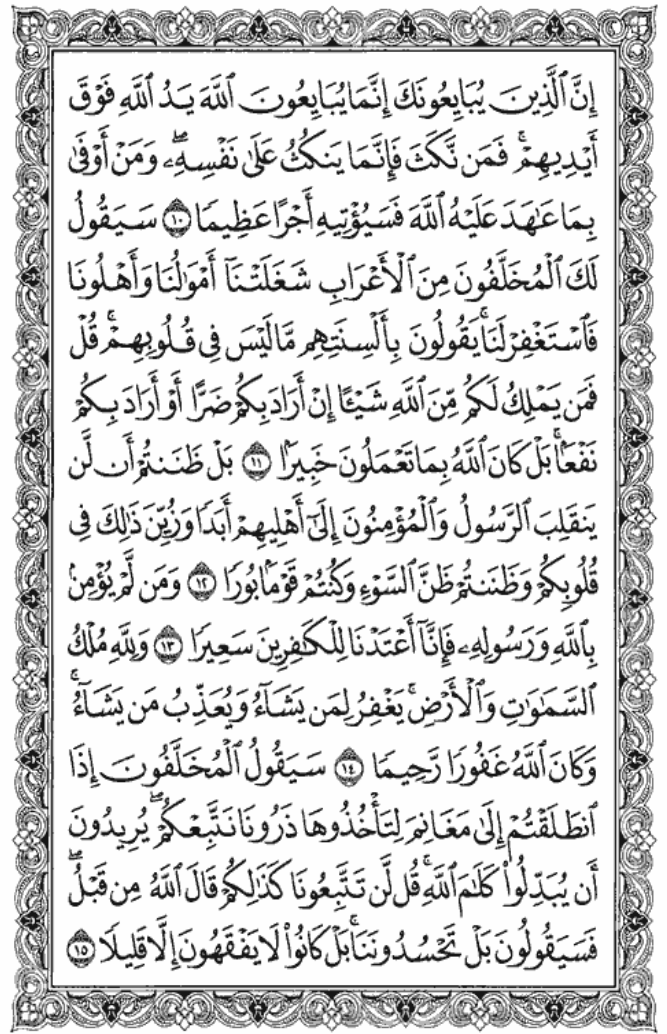 إِنَّ ٱلَّذِينَ يُبَايِعُونَكَ إِنَّمَا يُبَايِعُونَ ٱللَّهَ يَدُ ٱللَّهِ فَوْقَ
أَيْدِيهِمْ ۚ فَمَن نَّكَثَ فَإِنَّمَا يَنكُثُ عَلَىٰ نَفْسِهِۦ ۖ وَمَنْ أَوْفَىٰ
بِمَا عَـٰهَدَ عَلَيْهُ ٱللَّهَ فَسَيُؤْتِيهِ أَجْرًا عَظِيمًا ١٠ سَيَقُولُ
لَكَ ٱلْمُخَلَّفُونَ مِنَ ٱلْأَعْرَابِ شَغَلَتْنَآ أَمْوَٰلُنَا وَأَهْلُونَا
فَٱسْتَغْفِرْ لَنَا ۚ يَقُولُونَ بِأَلْسِنَتِهِم مَّا لَيْسَ فِى قُلُوبِهِمْ ۚ قُلْ
فَمَن يَمْلِكُ لَكُم مِّنَ ٱللَّهِ شَيْـًٔا إِنْ أَرَادَ بِكُمْ ضَرًّا أَوْ أَرَادَ بِكُمْ
نَفْعًۢا ۚ بَلْ كَانَ ٱللَّهُ بِمَا تَعْمَلُونَ خَبِيرًۢا ١١ بَلْ ظَنَنتُمْ أَن لَّن
يَنقَلِبَ ٱلرَّسُولُ وَٱلْمُؤْمِنُونَ إِلَىٰٓ أَهْلِيهِمْ أَبَدًا وَزُيِّنَ ذَٰلِكَ فِى
قُلُوبِكُمْ وَظَنَنتُمْ ظَنَّ ٱلسَّوْءِ وَكُنتُمْ قَوْمًۢا بُورًا ١٢ وَمَن لَّمْ يُؤْمِنۢ
بِٱللَّهِ وَرَسُولِهِۦ فَإِنَّآ أَعْتَدْنَا لِلْكَـٰفِرِينَ سَعِيرًا ١٣ وَلِلَّهِ مُلْكُ
ٱلسَّمَـٰوَٰتِ وَٱلْأَرْضِ ۚ يَغْفِرُ لِمَن يَشَآءُ وَيُعَذِّبُ مَن يَشَآءُ ۚ
وَكَانَ ٱللَّهُ غَفُورًا رَّحِيمًا ١٤ سَيَقُولُ ٱلْمُخَلَّفُونَ إِذَا
ٱنطَلَقْتُمْ إِلَىٰ مَغَانِمَ لِتَأْخُذُوهَا ذَرُونَا نَتَّبِعْكُمْ ۖ يُرِيدُونَ
أَن يُبَدِّلُوا۟ كَلَـٰمَ ٱللَّهِ ۚ قُل لَّن تَتَّبِعُونَا كَذَٰلِكُمْ قَالَ ٱللَّهُ مِن قَبْلُ ۖ
فَسَيَقُولُونَ بَلْ تَحْسُدُونَنَا ۚ بَلْ كَانُوا۟ لَا يَفْقَهُونَ إِلَّا قَلِيلًا ١٥